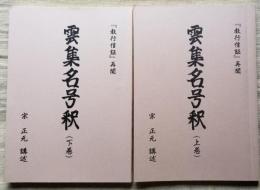 『教行信証』再聞
雲集名号釈
(上巻)
宗 正元 講述
『教行信証』再聞
雲集名号釈
(下巻)
宗 正元 講述